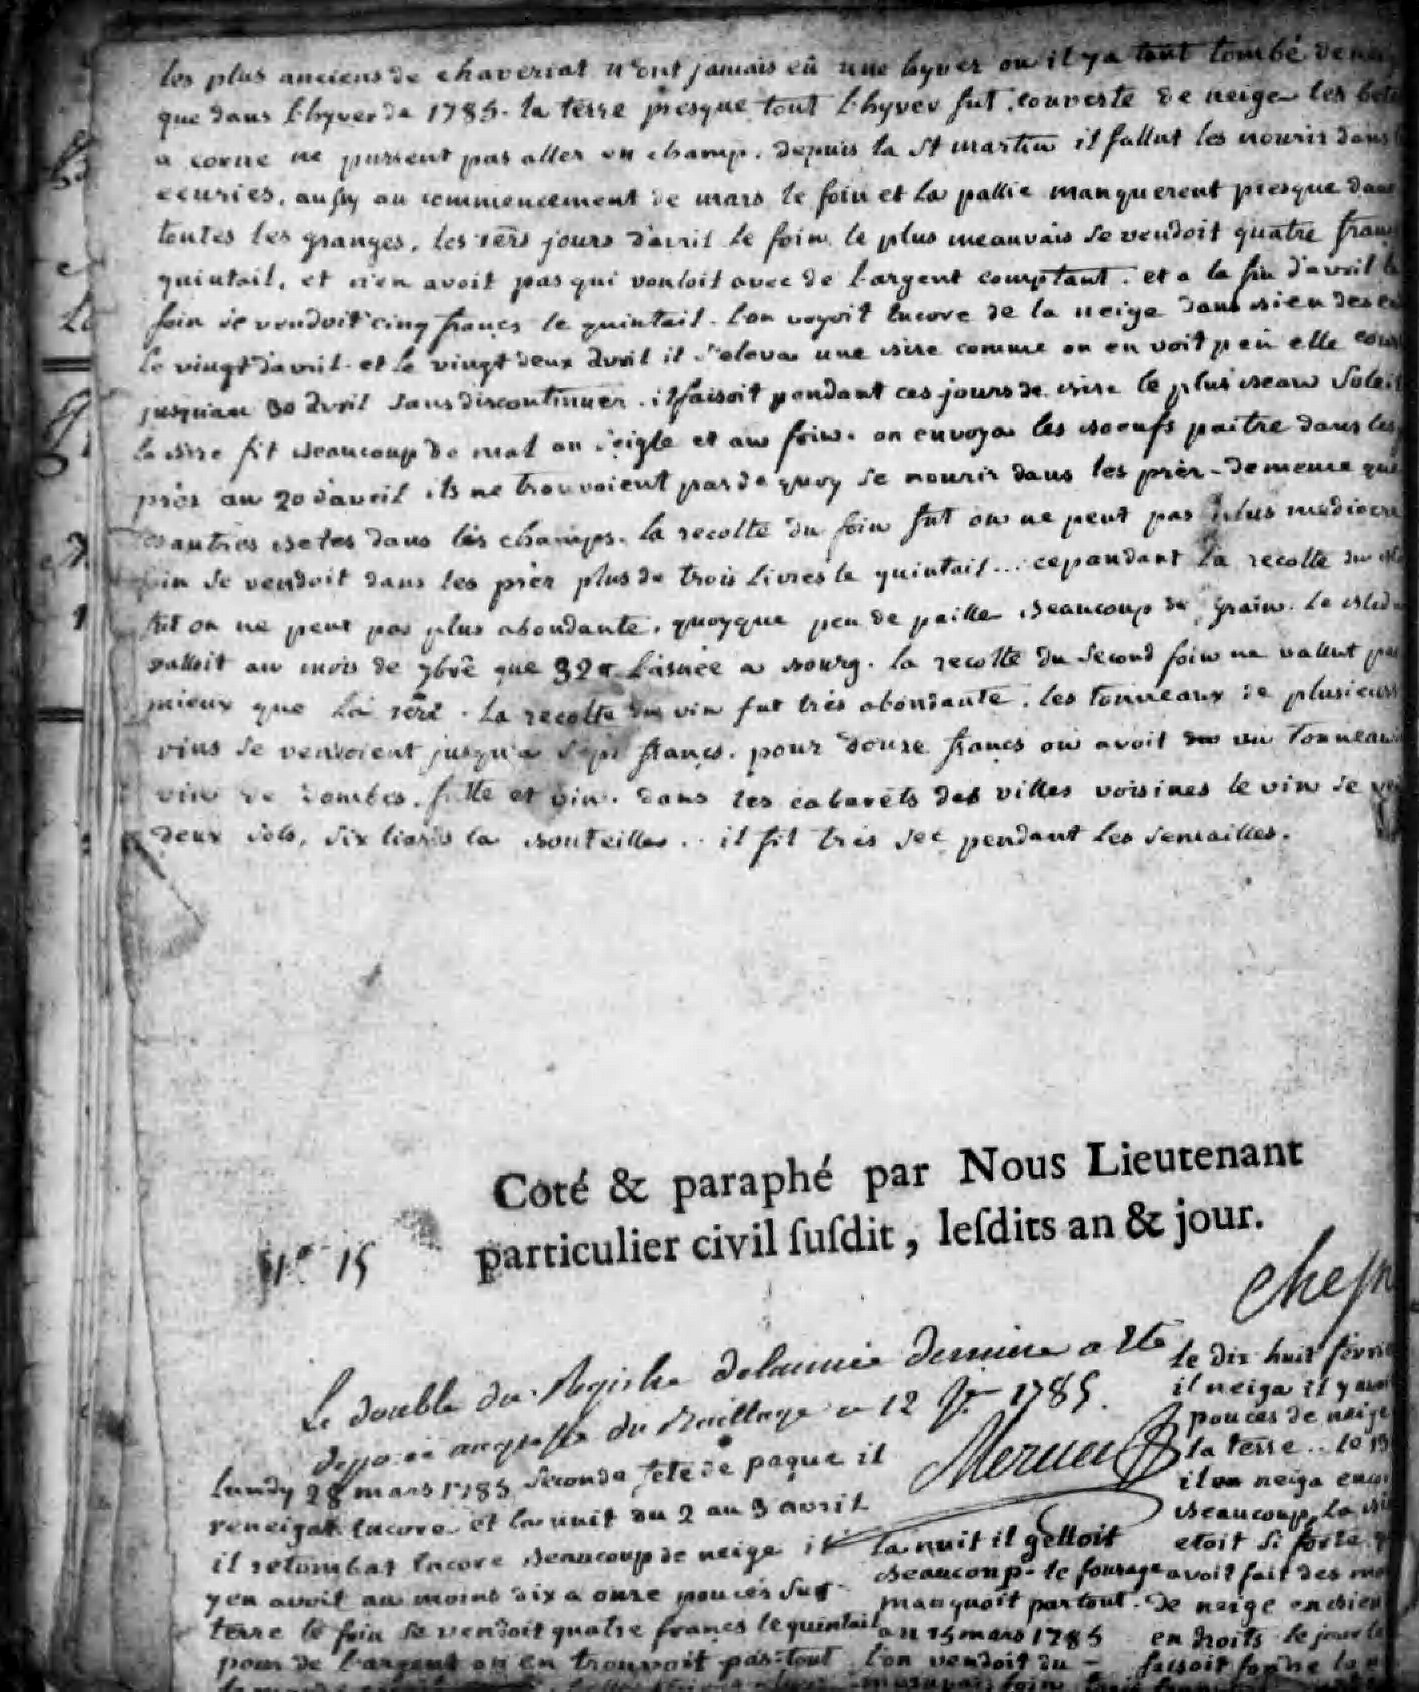 les plus anciens de chaveriat n'ont jamais eû une hyver ou il y a tant tombé de
que dans l'hyver de 1785. la terre presque tout l'hyver fut couverte de neige les bete
a corne ne pursent pas aller en champ. depuis la St martin il fallut les nourir dans
ecuries. aussy au commencement de mars le foin et la pallie manquerent presque dans
toutes les granges, les 1ers jours d'avril le foin le plus meauvais se vendoit quatre francs
quintail, et n'en avoit pas qui vouloit avec de l'argent comptant. et a la fin d'avril le
foin se vendoit cinq francs le quintail. l'on voyoit encore de la neige dans bien des
le vingt d'avril. et le vingt deux avril il s'eleva une bise comme on en voit peu elle
jusqu'au 30 avril sans discontinuer. il faisoit pendant ces jours de bise le plus beau soleil
la bise fit beaucoup de mal au seigle et au foin. on envoya les boeufs paitre dans les
près au 20 d'avril ils ne trouvoient pas de quoy se nourir dans les prèr - de meme que
les autres betes dans les champs. la recolte du foin fut on ne peut pas plus mediocre
foin se vendoit dans les prèr plus de trois livres le quintail... cependant la recolte du
fut on ne peut pas plus abondante, quoyque peu de paille beaucoup de grain. le bled
valloit au mois de 9bre que 32 l'asnée a bourg. la recolte du second foin ne valut pas
mieux que la 1ere. la recolte du vin fut très abondante. les tonneaux de plusieurs
vins se vendoient jusqu'a sept francs. pour douze francs on avoit un tonneau
vin de dombes, futte et vin. dans les cabarets des villes voisines le vin se
deux sols, six liards la bouteilles.. il fit très sec pendant les semailles.
Coté & paraphé par Nous Lieutenant
particulier civil ſuſdit, leſdits an & jour.
15
Le double du Registre de l'année derniere a été
deposé au greffe du Bailliage le 12 1785.
le dix huit fevrier
il neiga il y avoit
pouces de neige
la terre.. le 19
il en neiga encore
beaucoup, la bise
etoit si forte
avoit fait des
de neige en bien
endroits le jour le
faisoit fondre la
lundy 28 mars 1785 seconde fete de paque il
reneigat encore et la nuit du 2 au 3 avril
il retombat encore beaucoup de neige il
y en avoit au moins dix a onze pouces sur
terre le foin se vendoit quatre francs le quintail
pour de l'argent on en trouvoit pas tout
la nuit il gelloit
beaucoup. le fourage
manquoit partout.
au 15 mars 1785
l'on vendoit du -
mauvais foin trois francs